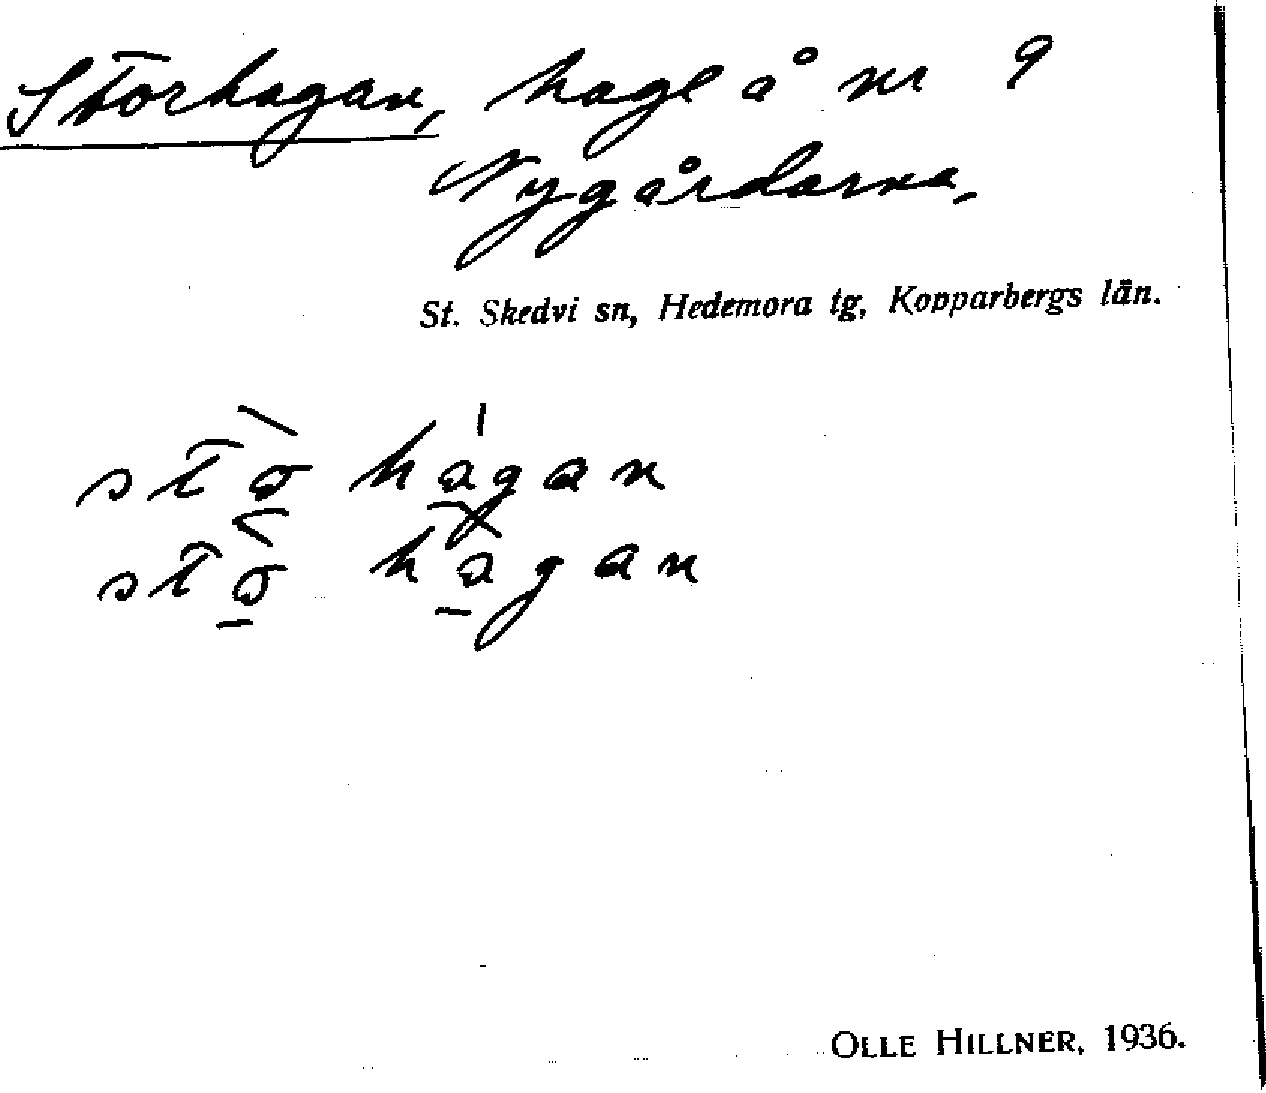 Storhagan, hage å nr 9
Nygårdarna.
St. Skedvi sn, Hedemora tg, Kopparbergs län.
stò hágan
sto hagan
OLLE HILLNER, 1936.